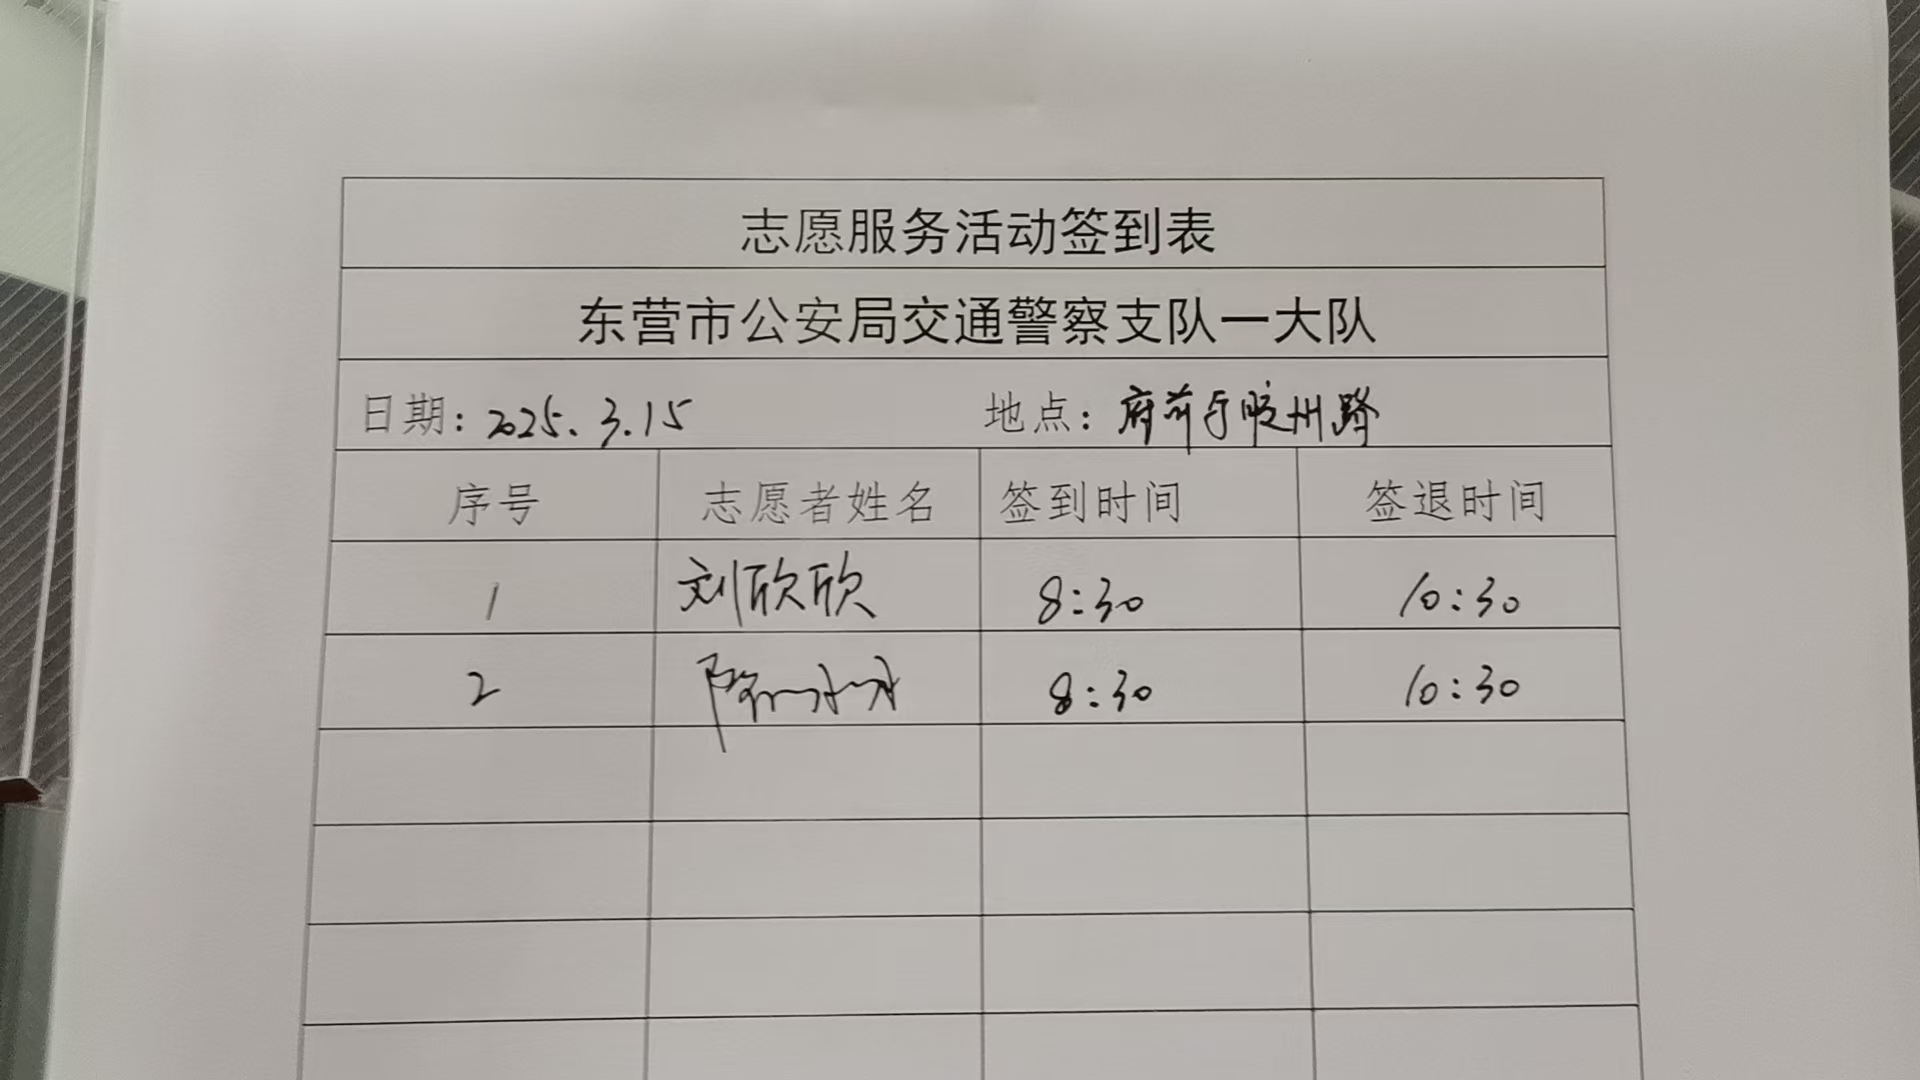 志愿服务活动签到表
东营市公安局交通警察支队一大队
日期: 2025.3.15 地点: 府前与胶州路
序号 志愿者姓名 签到时间 签退时间
1 刘欣欣 8:30 10:30
2 8:30 10:30